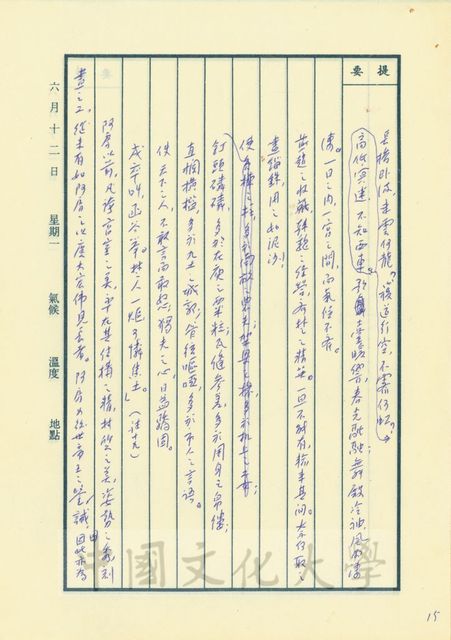 提要
長橋臥波，未雲何龍？複道行空，不霽何虹？
高低冥迷，不知西東。歌臺暖響，春光融融；舞殿冷袖，風雨淒
淒。一日之內，一宮之間，而氣候不齊。
燕趙之收藏，韓魏之經營，齊楚之精英。一旦不能有，輸來其間。奈何取之
盡錙銖，用之如泥沙！
使負棟之柱，多於南畝之農夫；架梁之椽，多於機上之工女；
釘頭磷磷，多於在庾之粟粒；瓦縫參差，多於周身之帛縷；
直欄橫檻，多於九土之城郭；管絃嘔啞，多於市人之言語。
使天下之人，不敢言而敢怒；獨夫之心，日益驕固。
戍卒叫，函谷舉。楚人一炬，可憐焦土。（註十九）
阿房以前，凡誇宮室之美，率尤其結構之精，材質之美，姿勢之
畫之工，從未有如阿房之比度大宏佈見長者。阿房為經世帝王之誡，因此亦為
六月十二日
星期一
氣候
溫度
地點
中國文化大學
15